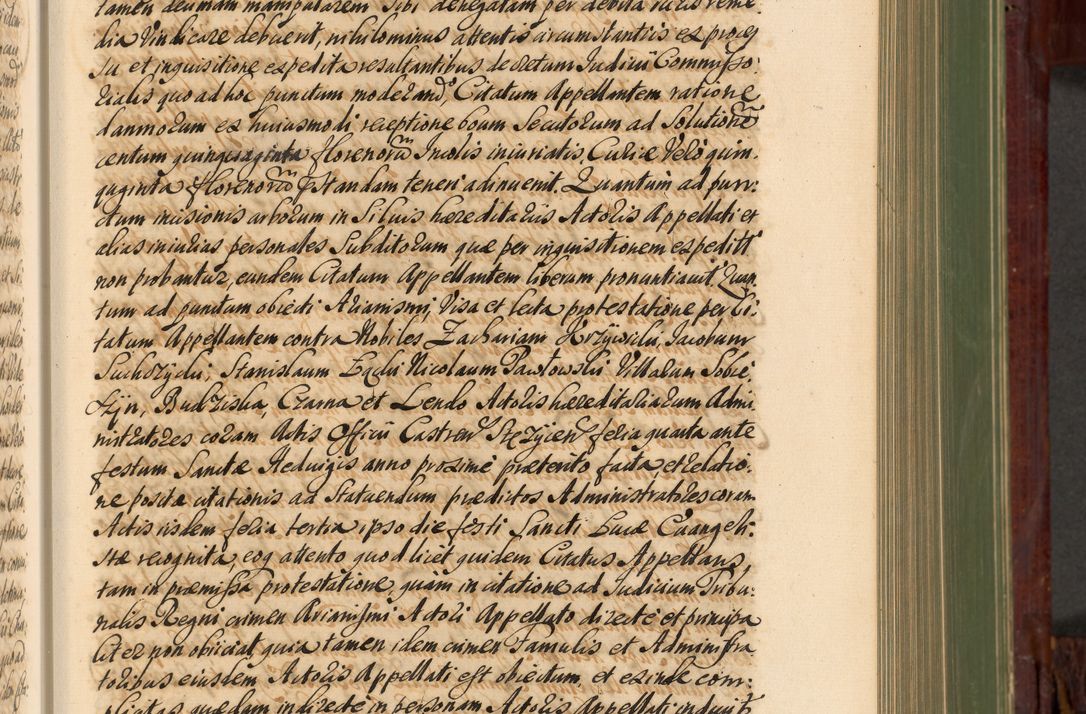 tamen deumam manipularem sibi denegatam per debita iuris reme
dia vindicare debuerit, nihilominus attentis circumstantiis ex proces
su et inquisitione expedita resultantibus decretum Iudicii Commisso:
rialis quo ad hoc punctum moderand, Citatum Appellantem ratione
damnorum ex huiusmodi receptione boum Secutorum ad Solutione
centum quinquaginta florenorum Incolis iniuriatis, Curiæ Vero quin.
quginta florenorum pstandam teneri adinuenit. Quantum ad pun:
ctum incisionis arborum in Siluis hæreditariis Actoris Appellati et
alias iniurias personales Subditorum quæ per inquisitionem expedit
non probantur, eundem Citatum Appellantem liberum pronuntiauit. Quan
tum ad punctum obiecti Arianismi, Visa et lecta protestatione per Ci:
tatum Appellantem contra Nobiles Zachariam Krzywicki, Jacobum
Suchodzycki, Stanislaum Nicolaum Pawłowski Villarum Sobie
Budziska, Czarna et Lendo Actoris hæreditariarum Admi
nistratores coram Actis Officii Castren Stezycien feria quarta ante
festum Sanctæ Heduigis anno proxime præterito facta, et relatio:
ne positæ citationis ad Statuendum prædictos Administratores coram
Actis iisdem feria tertia ipso die festi Sancti Lucæ Euangeli:
stæ recognita, eoq attento quod licet quidem Citatus Appellans,
tam in præmissa protestatione, quam in citatione ad Iudicium Tribu:
nalis Regni crimen Arianismi Actori Appellato directe et principa
liter non obiiciat, quia tamen idem crimen Famulis et Administra
toribus eiusdem Actoris Appellati est obiectum, et exinde com:
plicitas quædam indirecte in personam Actoris Appellati induit